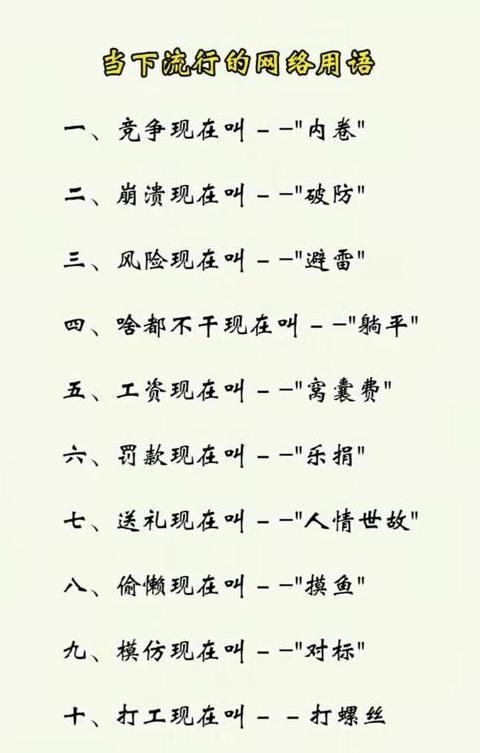 当下流行的网络用语
一、竞争现在叫--"内卷"
二、崩溃现在叫--"破防"
三、风险现在叫--"避雷"
四、啥都不干现在叫--"躺平"
五、工资现在叫--"窝囊费"
六、罚款现在叫--"乐捐"
七、送礼现在叫--"人情世故"
八、偷懒现在叫--"摸鱼"
九、模仿现在叫--"对标"
十、打工现在叫--打螺丝